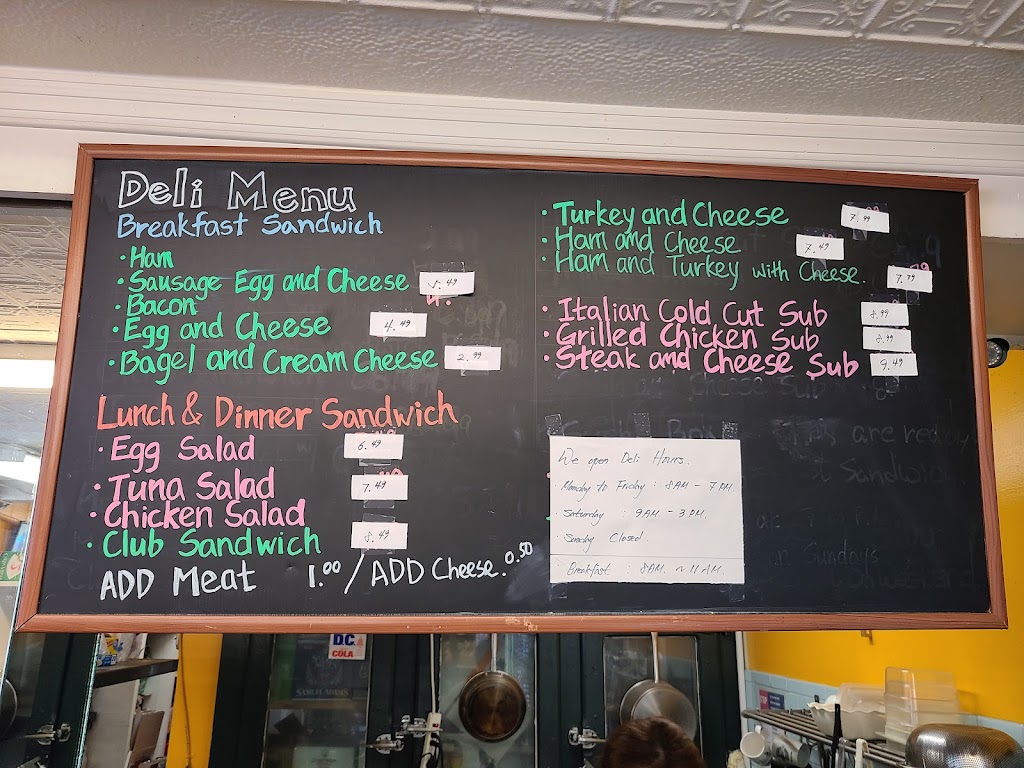 Deli Menu
Breakfast Sandwich
· Ham
· Sausage Egg and Cheese 5.49
· Bacon
· Egg and Cheese 4.49
· Bagel and Cream Cheese 2.99
Lunch & Dinner Sandwich
· Egg Salad 6.49
· Tuna Salad 7.49
· Chicken Salad
· Club Sandwich 8.49
ADD Meat 1.00 / ADD Cheese. 0.50
· Turkey and Cheese 7.99
· Ham and Cheese 7.49
· Ham and Turkey with Cheese. 7.99
· Italian Cold Cut Sub 8.99
· Grilled Chicken Sub 8.99
· Steak and Cheese Sub 9.49
We open Deli Hours.
· Monday to Friday : 8AM - 7PM.
· Saturday : 9AM. - 3PM.
· Sunday Closed.
Breakfast : 8AM. ~ 11AM.
D.C.
COLA
SAMUEL ADAMS